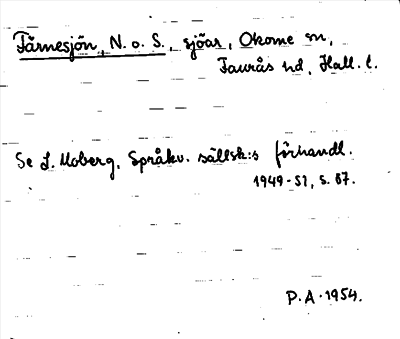 Färnesjön, N. o. S., sjöar, Okome sn,
Faurås hd, Hall. l.
Se L. Moberg, Språkv. sällsk:s förhandl.
1949-51, s. 67.
P.A. 1954.